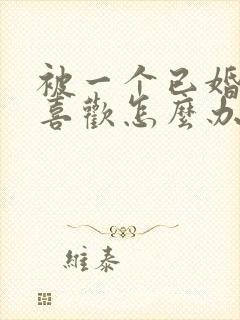 被一个已婚
喜歡怎麼办
維泰